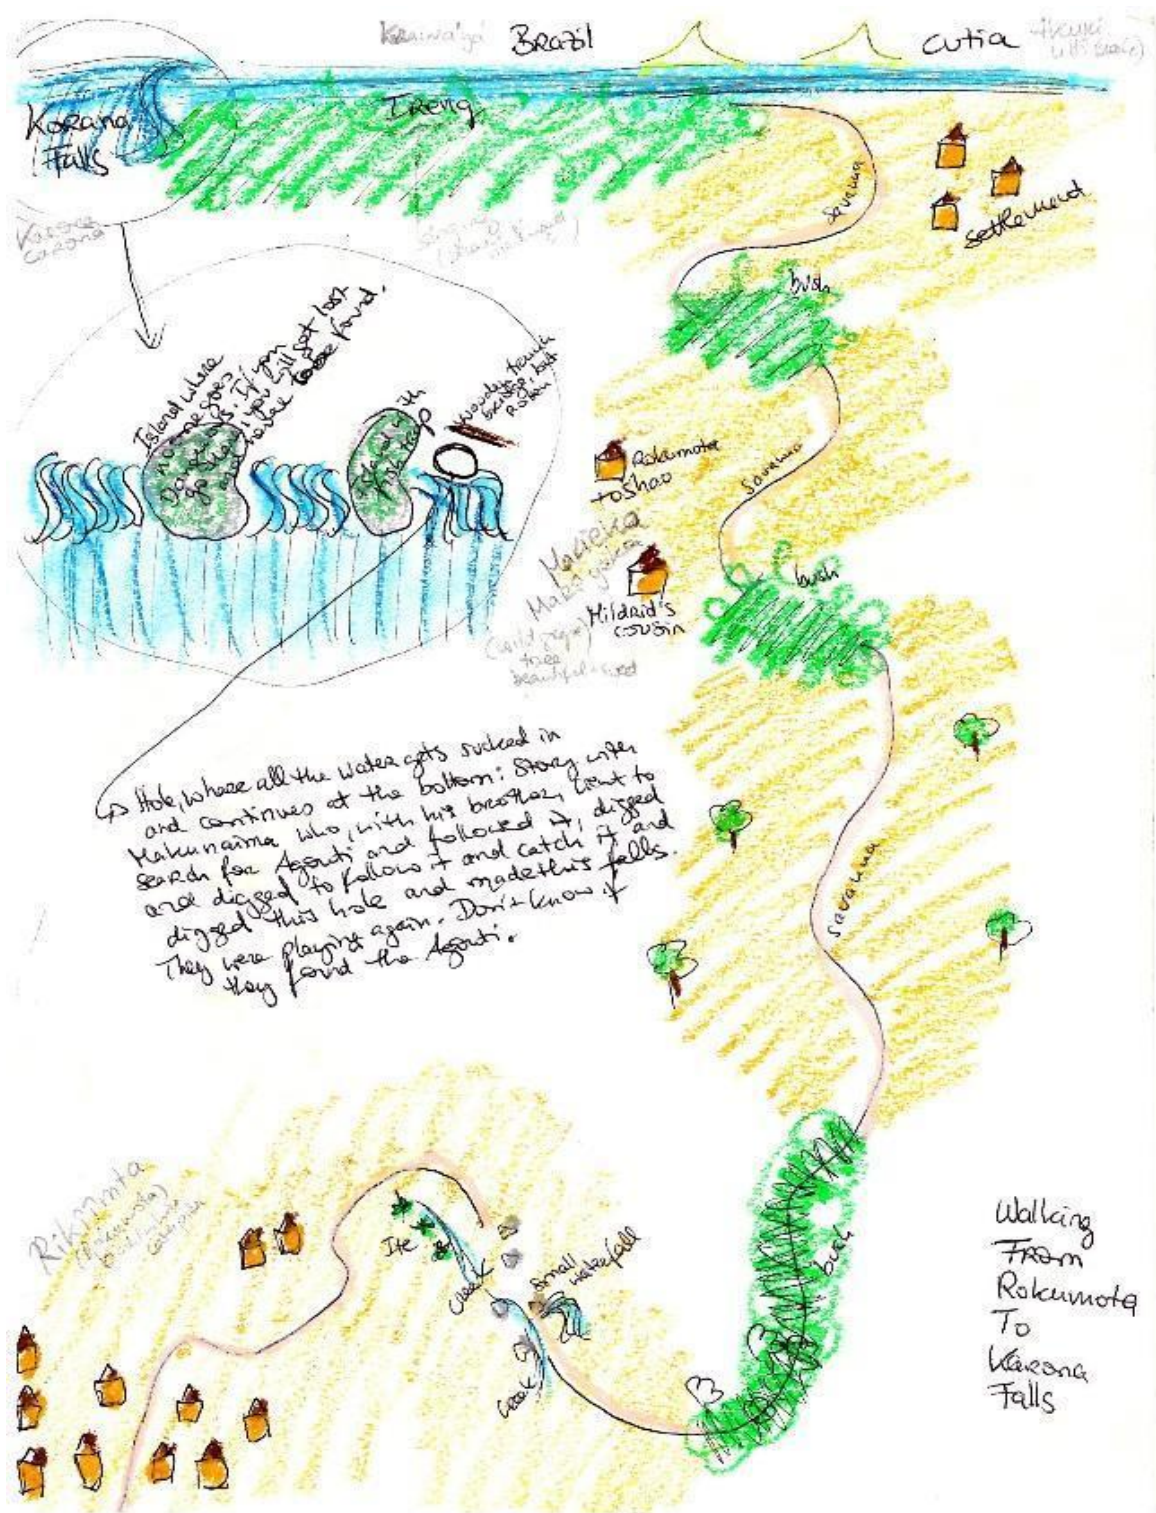 Brazil
Cutia
Korona
Falls
Ireng
Savanna
settlement
bush
Island where
no one goes
always. If you
go there, you will get lost
and never to be found.
Island with
Wooden trunk
bridge, but
rotten
Rokumota
toshao
Savanna
Macieka
Mildrid's
cousin
(wild
tree
beautiful
bush
Hole, where all the water gets sucked in
and continues at the bottom: Story with
Makunaima who, with his brother, went to
search for Agouti and followed it, digged
and digged to follow it and catch it and
digged this hole and made this falls.
They were playing again. Don't know if
they found the Agouti.
Savanna
Rikmnta
Ite
Creek
Small
waterfall
Creek
bush
Walking
From
Rokumota
To
Karona
Falls